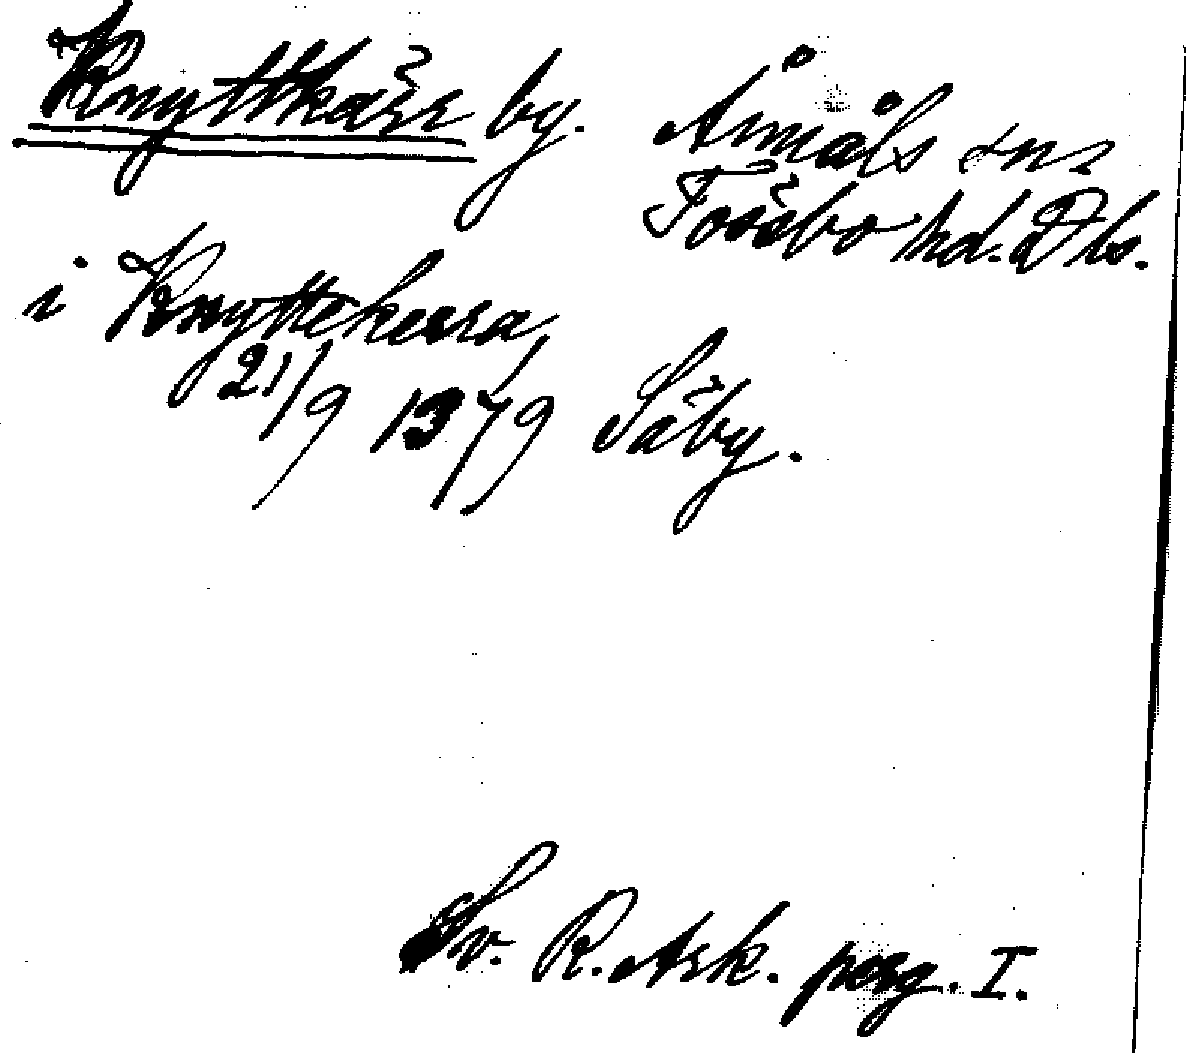 Knyttkärr by. Åmåls sn
Tössbo hd. Dls.
i Knyttekerra,
21/9 1379 Säby.
Sv. R. Ark. perg. I.